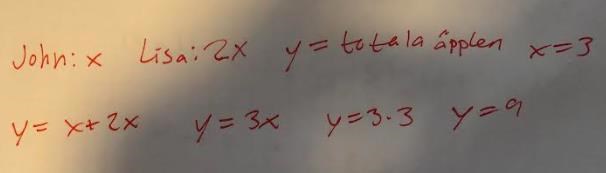 John: x Lisa: 2x y = totala äpplen x = 3
y = x + 2x y = 3x y = 3·3 y = 9